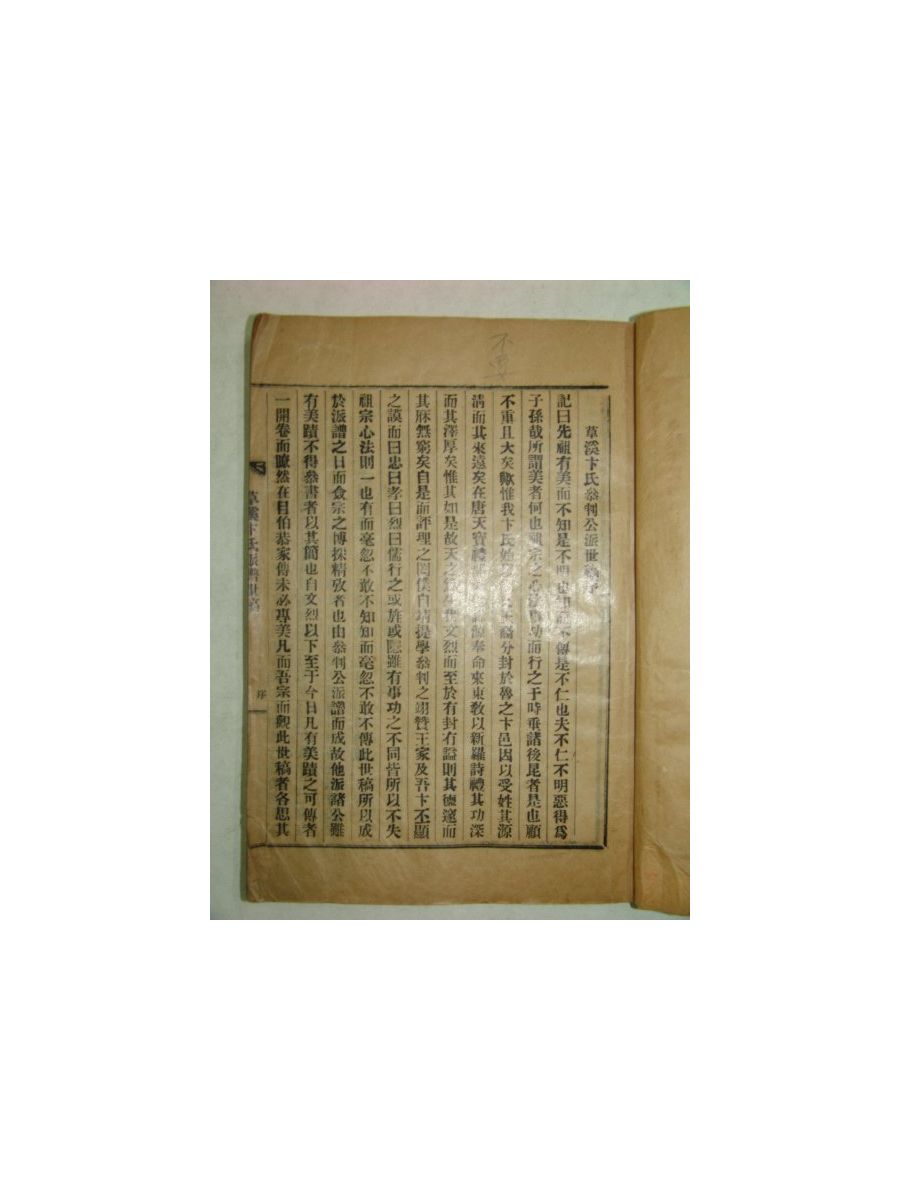 不要
草溪卞氏叅判公派世稿序
記曰先祖有美而不知是不明也知而不傳是不仁也夫不仁不明惡得爲
子孫哉所謂美者何也祖宗之心法 而行之于時垂諸後昆者是也顧
不重且大矣歟惟我卞氏始 分封於魯之卞邑因以受姓其源
淸而其來遠矣在唐天寶禮 源奉命來東敎以新羅詩禮其功深
而其澤厚矣惟其如是故天之 文烈而至於有封有諡則其德遠而
其庥無窮矣自是而評理之 自靖提學叅判之翊贊王家及吾卞丕顯
之謨而曰忠曰孝曰烈曰儒行之或旌或隱雖有事功之不同皆所以不失
祖宗心法則一也有而毫忽不敢不知知而毫忽不敢不傳此世稿所以成
於派譜之日而僉宗之博採精攷者也由叅判公派譜而成故他派諸公雖
有美蹟不得叅書者以其簡也自文烈以下至于今日凡有美蹟之可傳者
一開卷而瞭然在目伯恭家傳未必專美凡而吾宗而觀此世稿者各思其
草溪卞氏派譜世稿
序